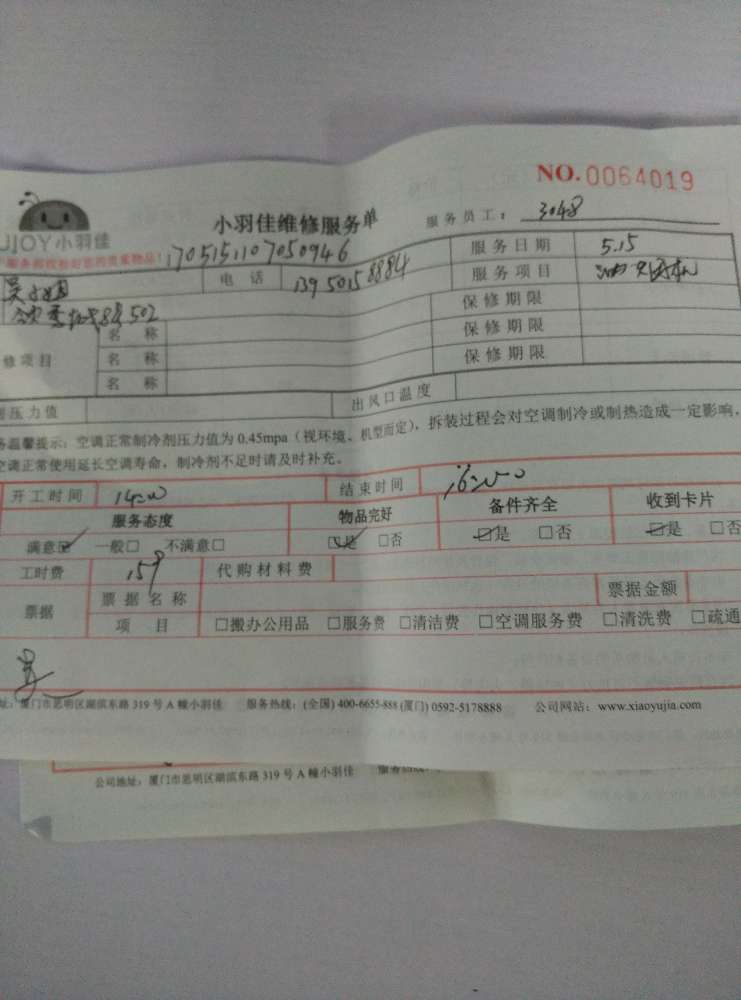 NO.0064019
UJOY小羽佳
小羽佳维修服务单 服务员工: 3048
1705151107050946
服务日期 5.15
电话 13950158884 服务项目
502 保修期限
名称 保修期限
修项目 名称 保修期限
名称
压力值 出风口温度
温馨提示:空调正常制冷剂压力值为0.45mpa(视环境、机型而定),拆装过程会对空调制冷或制热造成一定影响,
空调正常使用延长空调寿命,制冷剂不足时请及时补充。
开工时间 14:00 结束时间 16:00
服务态度 物品完好 备件齐全 收到卡片
满意☑ 一般□ 不满意□ ☑是 □否 ☑是 □否 ☑是 □否
工时费 159 代购材料费
票据 票据名称 票据金额
项目 □搬办公用品 □服务费 □清洁费 □空调服务费 □清洗费 □疏通
址:厦门市思明区湖滨东路319号A幢小羽佳 服务热线:(全国)400-6655-888 (厦门) 0592-5178888 公司网站:www.xiaoyujia.com
公司地址:厦门市思明区湖滨东路319号A幢小羽佳 服务热线: